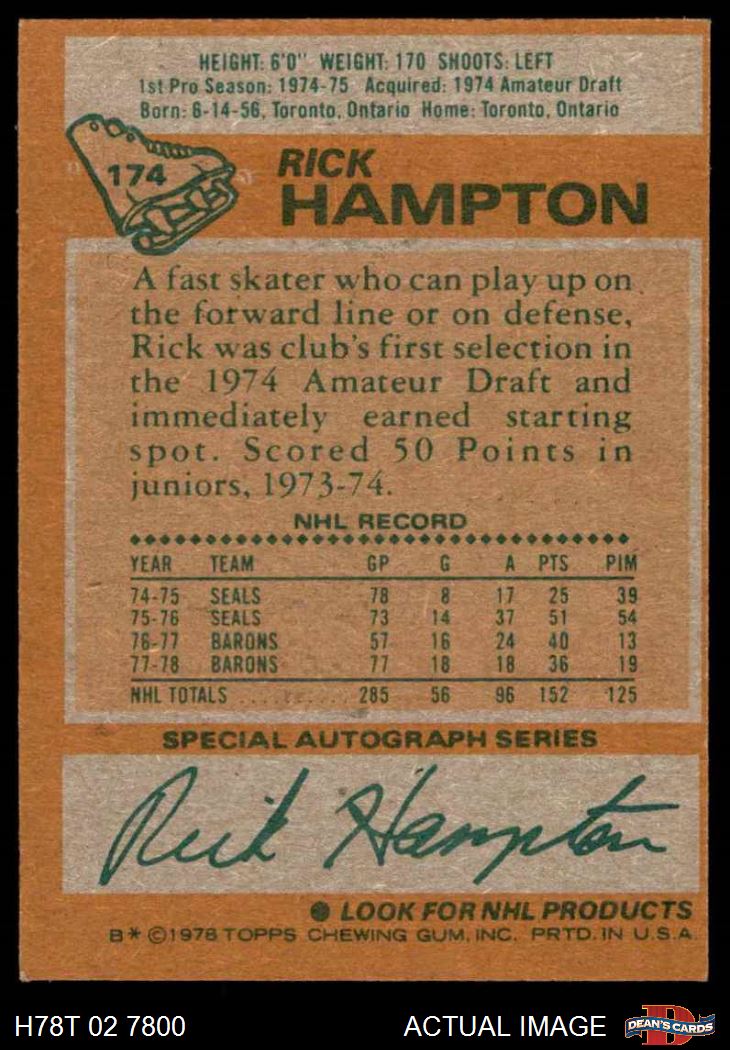 HEIGHT: 6'0" WEIGHT: 170 SHOOTS: LEFT
1st Pro Season: 1974-75 Acquired: 1974 Amateur Draft
Born: 6-14-56, Toronto, Ontario Home: Toronto, Ontario
174
RICK
HAMPTON
A fast skater who can play up on
the forward line or on defense,
Rick was club's first selection in
the 1974 Amateur Draft and
immediately earned starting
spot. Scored 50 Points in
juniors, 1973-74.
NHL RECORD
YEAR TEAM GP G A PTS PIM
74-75 SEALS 78 8 17 25 39
75-76 SEALS 73 14 37 51 54
76-77 BARONS 57 16 24 40 13
77-78 BARONS 77 18 18 36 19
NHL TOTALS .......... 285 56 96 152 125
SPECIAL AUTOGRAPH SERIES
Rick Hampton
● LOOK FOR NHL PRODUCTS
B* ©1978 TOPPS CHEWING GUM, INC. PRTD. IN U.S.A.
H78T 02 7800 ACTUAL IMAGE D DEAN'S CARDS